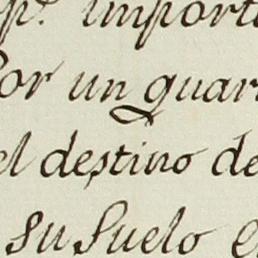 p.r import
Por un quar
el destino de
su suelo e